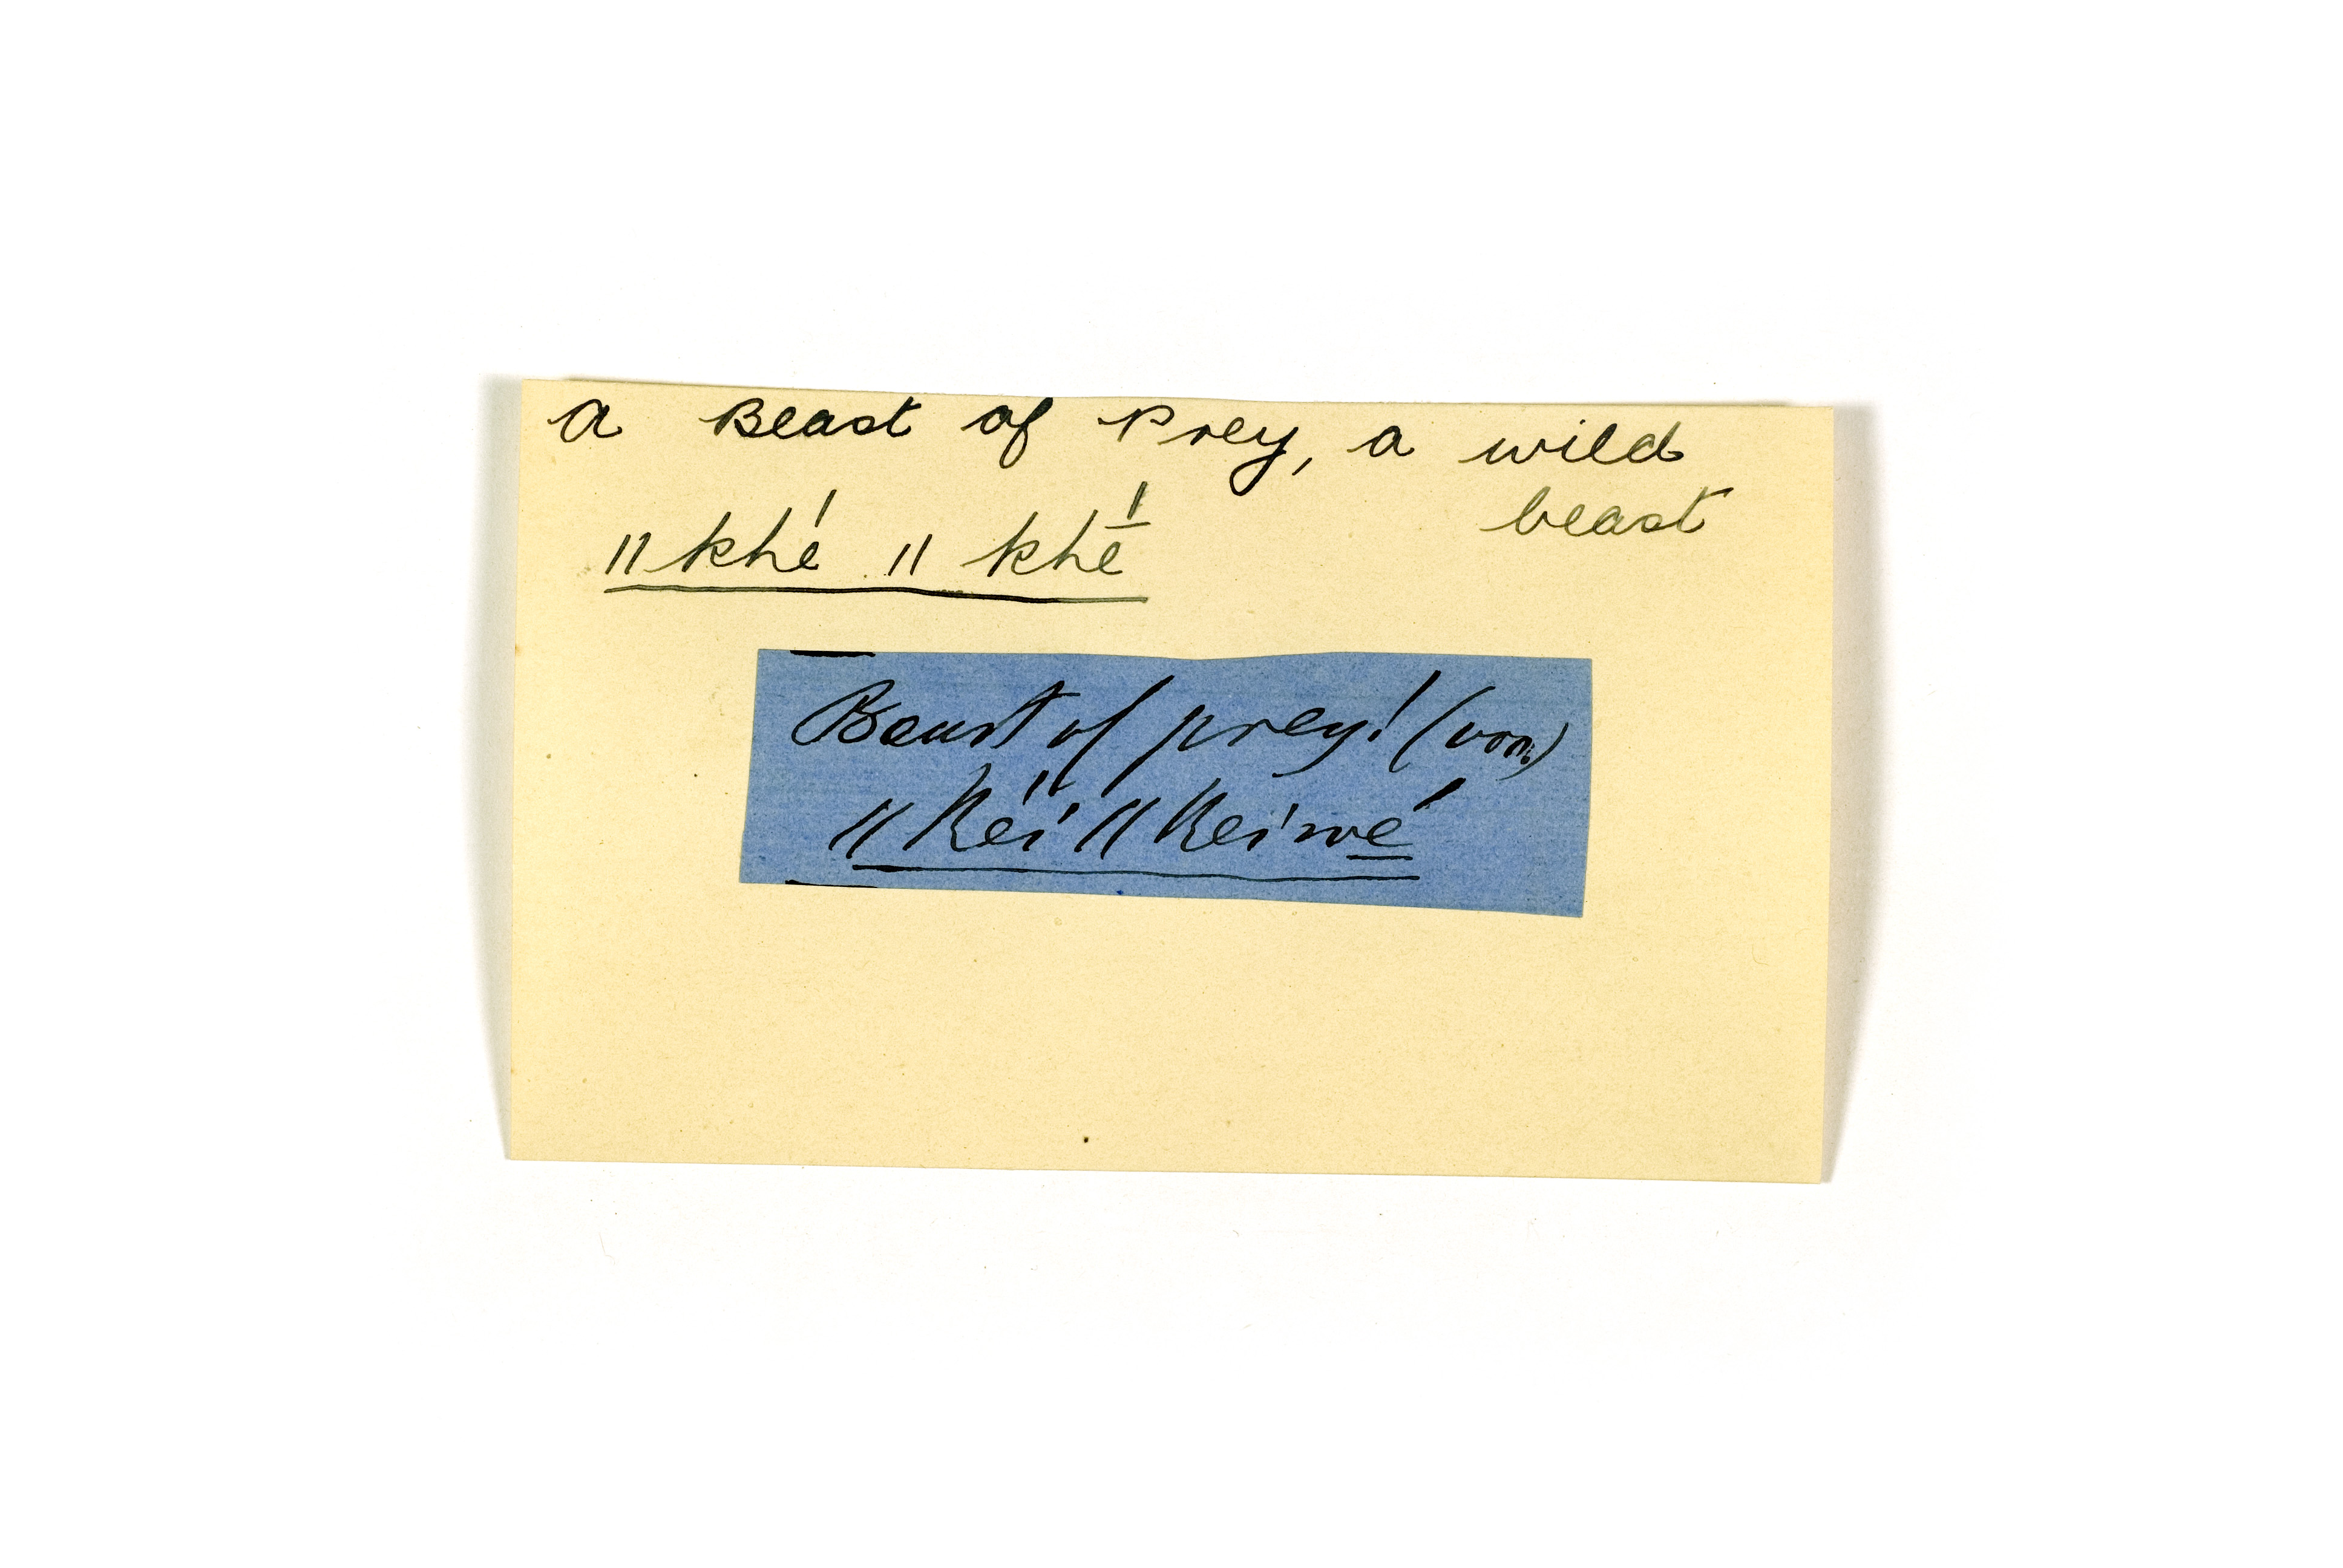 a Beast of Prey, a wild
beast
ǁkhé ǁkhé̱
Beast of prey! (voc.)
ǁkéï ǁkeïwé̱